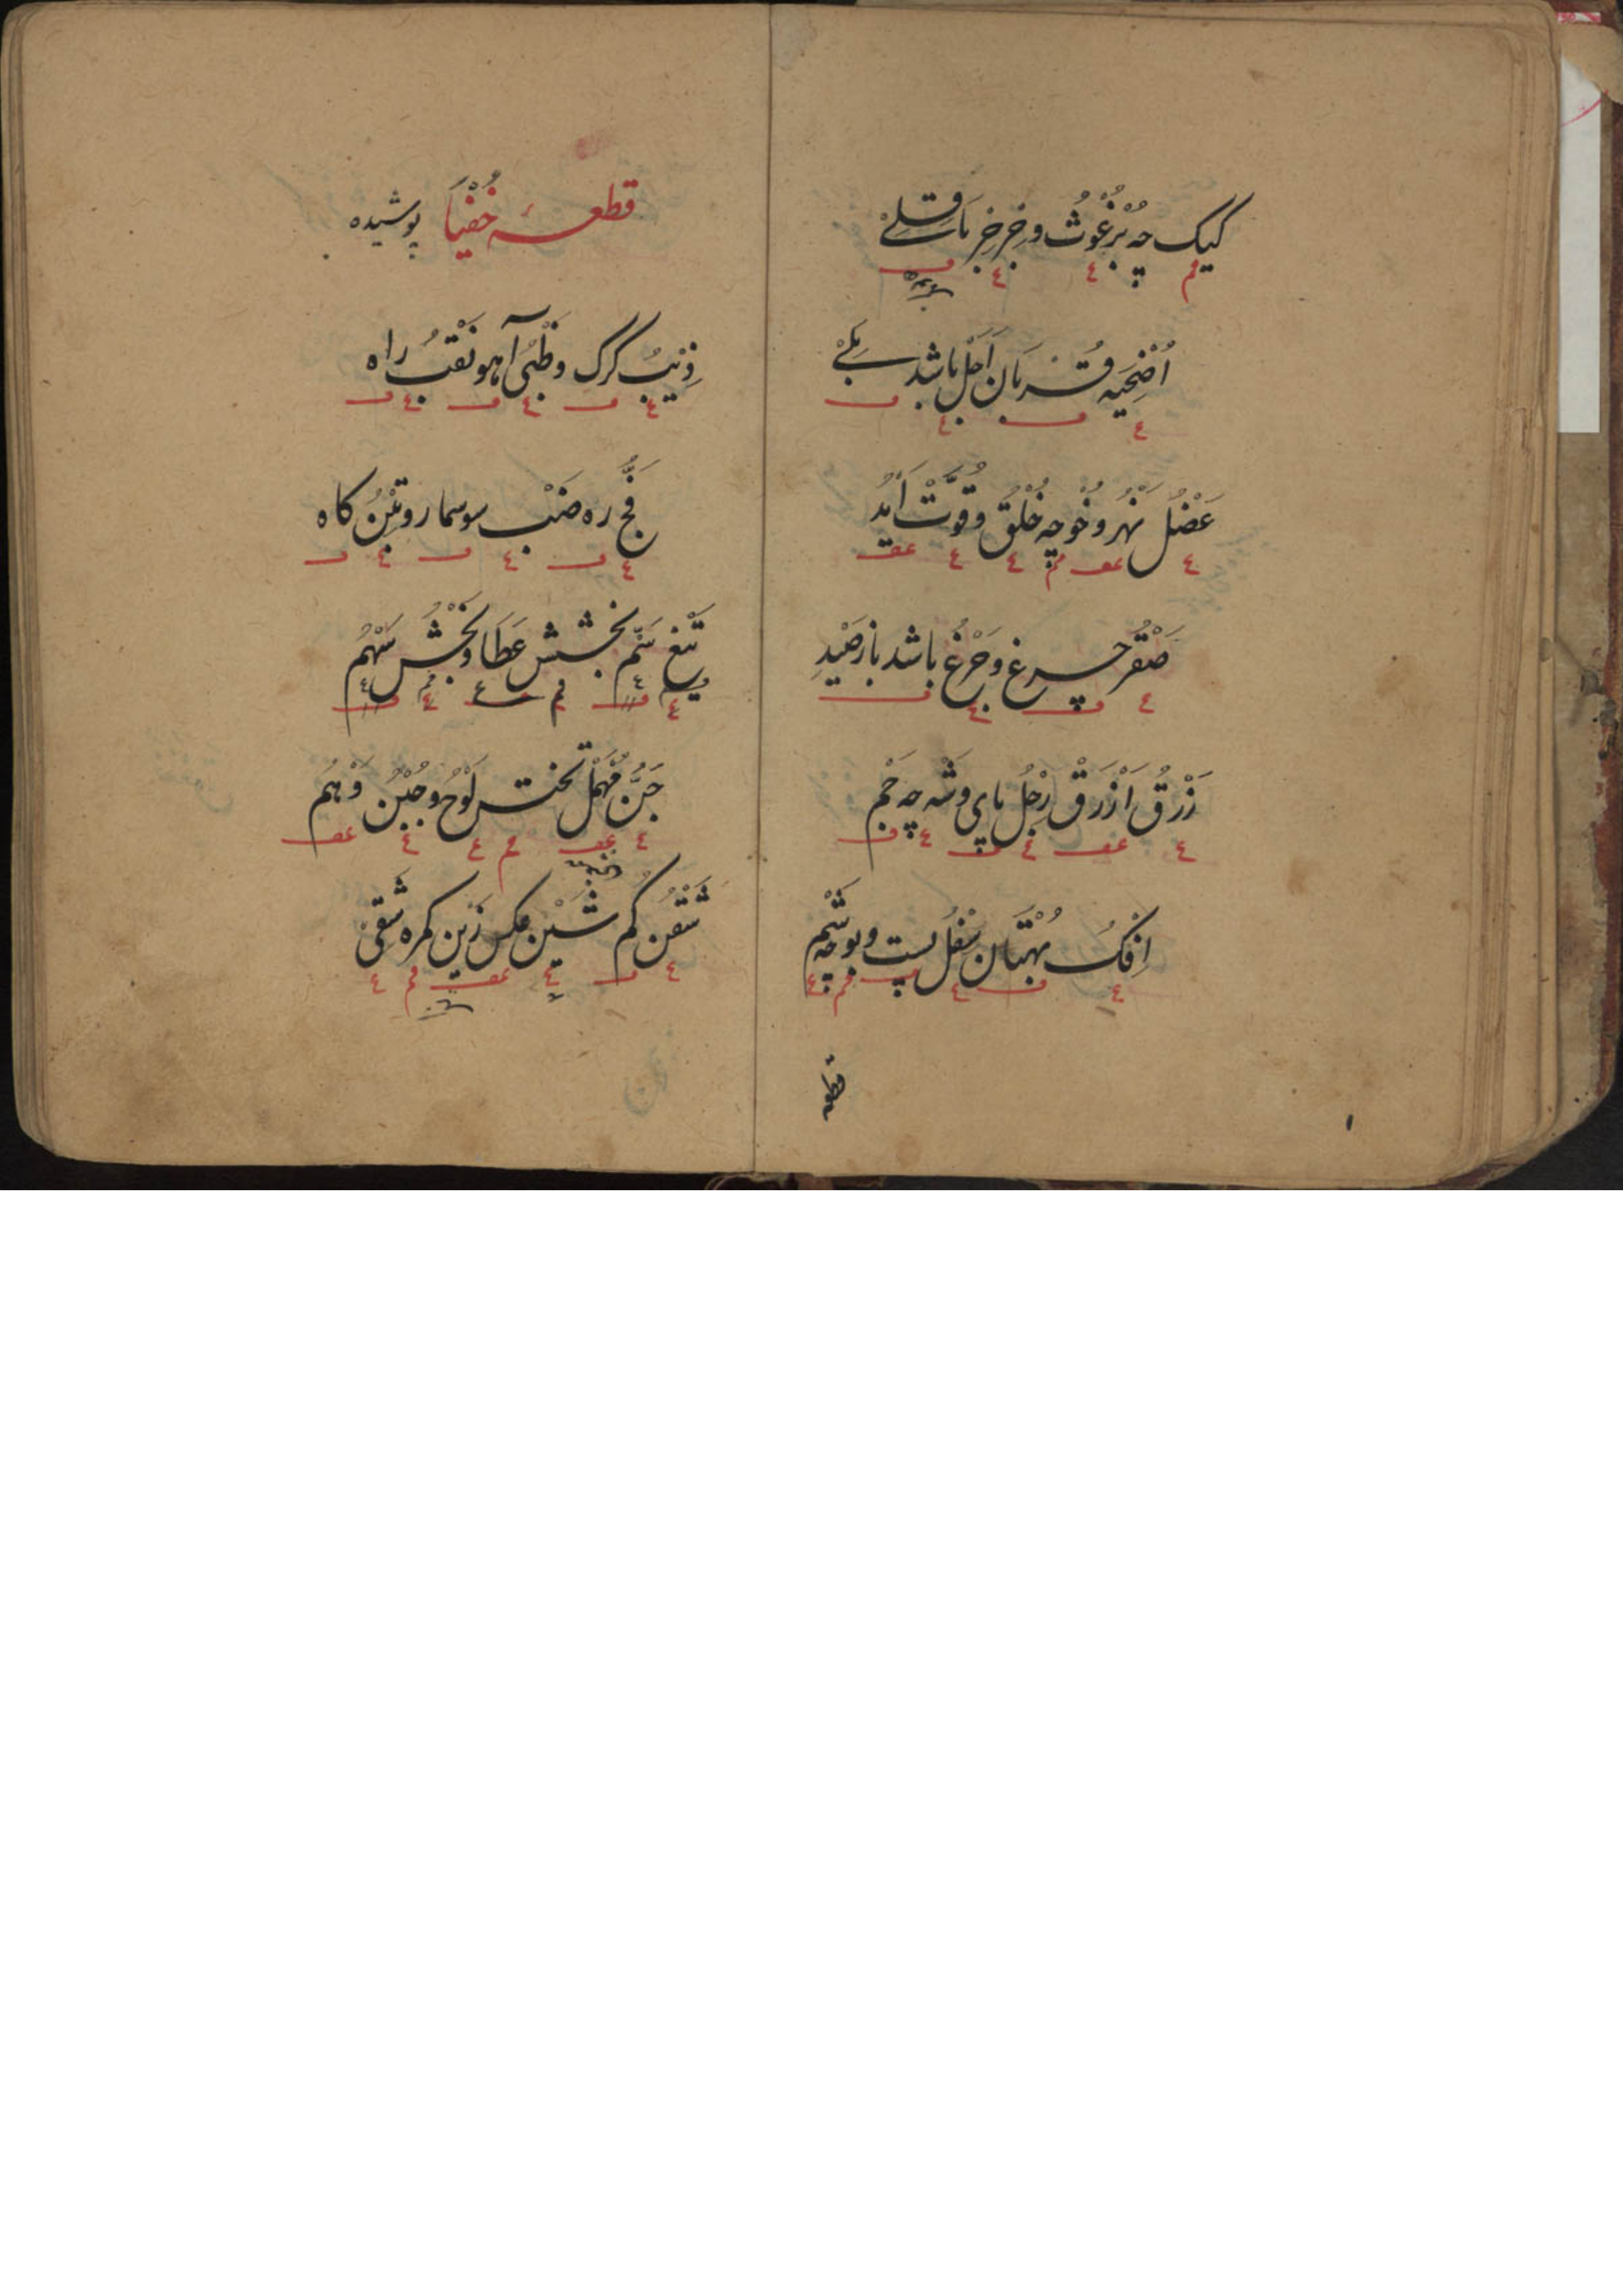 کیک چه بُرْغُوثْ و خِرخِر باقِلےٰ
اُضْحِیَه قُربان اَجَلْ باشد بَلےٰ
عَضُلْ نَهْرُ و خُو چه خُلْقُ و قُوَّتْ اَیْدُ
صَقْرُ چرغ و جَرْغُ باشد باز صَیْدِ
زَرْقُ اَزْرَقْ رِجْلُ پای و شَه چه جَمْ
اِفْکُ بُهْتان سُفْلُ پست و بو چه شَمْ
قطعه
قطعهٔ خُفْیَا پوشیده
ذِئبُ کرک و ظَبْیُ آهو نَقْبُ راه
فَجُّ ره ضَبْ سوسمار و تِبْنُ کاه
تیغ سَمّ بخشش عَطَا و بَخْشُ سَهْمُ
جَبُّنْ مُهْمَلْ تخته لَوْحُ و جُبْنُ وَهْمُ
شَقْنُ کم شَیْنْ عکس زَین کمره شَقِی